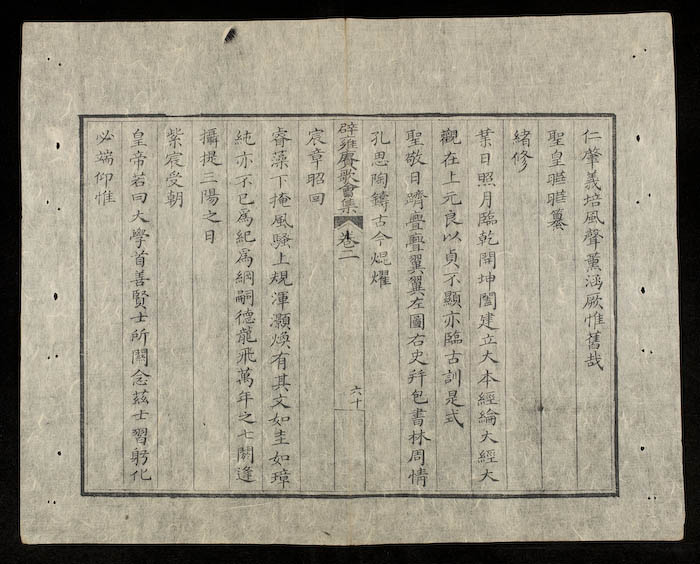 仁肇義培風聲薰洽厥惟舊哉
聖皇暀暀纂
緒修
葉日照月臨乾開坤闔建立大本經綸大經大
觀在上元良以貞不顯亦臨古訓是式
聖敬日躋亹亹翼翼左圖右史幷包書林周情
孔思陶鑄古今焜燿
辟雍賡歌會集 卷二 六十
宸章昭回
睿藻下掩風騷上規渾灝煥有其文如圭如璋
純亦不已爲紀爲綱嗣德龍飛萬年之七閼逢
攝提三陽之日
紫宸受朝
皇帝若曰大學首善賢士所關念茲士習躬化
必端仰惟